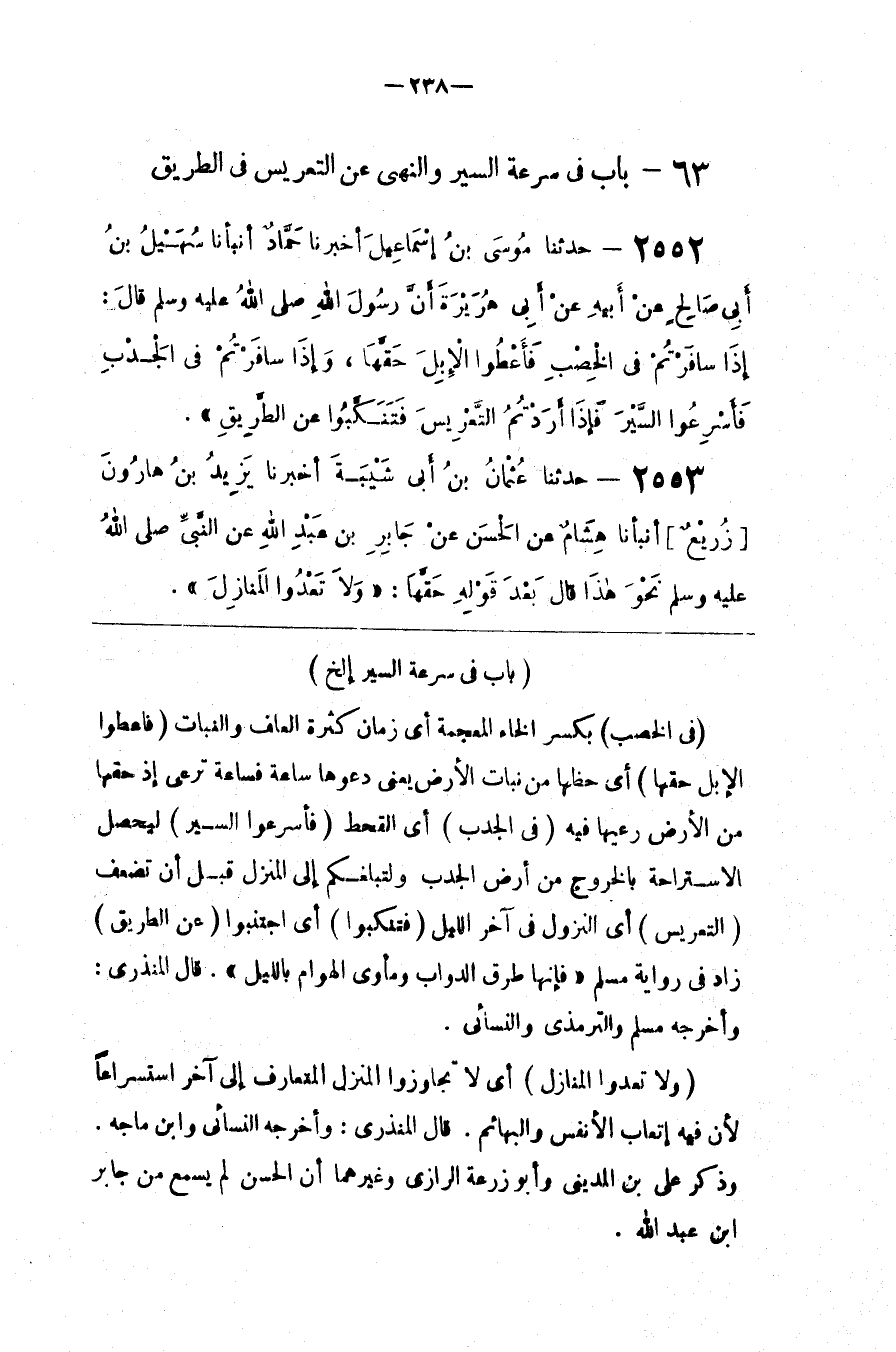 —٢٣٨—
٦٣ – باب فى سرعة السير والنهى عن التعريس فى الطريق
٢٥٥٢ – حدثنا مُوسَى بنُ إسْمَاعِيلَ أخبرنا حَمَّادٌ أنبأنا سُهَيْلُ بنُ
أبِي صَالِحٍ عنْ أبيهِ عنْ أبِى هُرَيْرَةَ أنَّ رسُولَ اللهِ صلى اللهُ عليه وسلم قالَ :
إذَا سافَرْتُمْ فى الْخِصْبِ فَأَعْطُوا الْإبِلَ حَقَّهَا ، وَإذَا سافَرْتُمْ فى الْجَدْبِ
فَأَسْرِعُوا السَّيْرَ فَإذَا أرَدْتُمُ التَّعْرِيسَ فَتَنَكَّبُوا عن الطَّرِيقِ » .
٢٥٥٣ – حدثنا عُثْمانُ بنُ أبى شَيْبَةَ أخبرنا يَزِيدُ بنُ هارُونَ
[ زُرَيْعٌ ] أنبأنا هِشَامٌ عن الْحَسَن عنْ جَابِرِ بن عَبْدِ اللهِ عن النَّبىِّ صلى اللهُ
عليه وسلم نَحْوَ هٰذَا قال بَعْدَ قَوْلِهِ حَقَّهَا : « وَلاَ تَعْدُوا الَمنازِلَ » .
( باب فى سرعة السير إلخ )
(فى الخصب) بكسر الخاء المعجمة أى زمان كثرة العلف والنبات ( فاعطوا
الإبل حقها ) أى حظها من نبات الأرض يعنى دعوها ساعة فساعة ترعى إذ حقها
من الأرض رعيها فيه ( فى الجدب ) أى القحط ( فأسرعوا السير ) ليحصل
الاستراحة بالخروج من أرض الجدب ولتبلغكم إلى المنزل قبل أن تضعف
( التعريس ) أى النزول فى آخر الليل ( فتنكبوا ) أى اجتنبوا ( عن الطريق )
زاد فى رواية مسلم « فإنها طرق الدواب ومأوى الهوام بالليل » . قال المنذرى :
وأخرجه مسلم والترمذى والنسائى .
( ولا تعدوا المنازل ) أى لا تجاوزوا المنزل المتعارف إلى آخر استسراعاً
لأن فيه إتعاب الأنفس والبهائم . قال المنذرى : وأخرجه النسائى وابن ماجه .
وذكر على بن المدينى وأبو زرعة الرازى وغيرهما أن الحسن لم يسمع من جابر
ابن عبد الله .